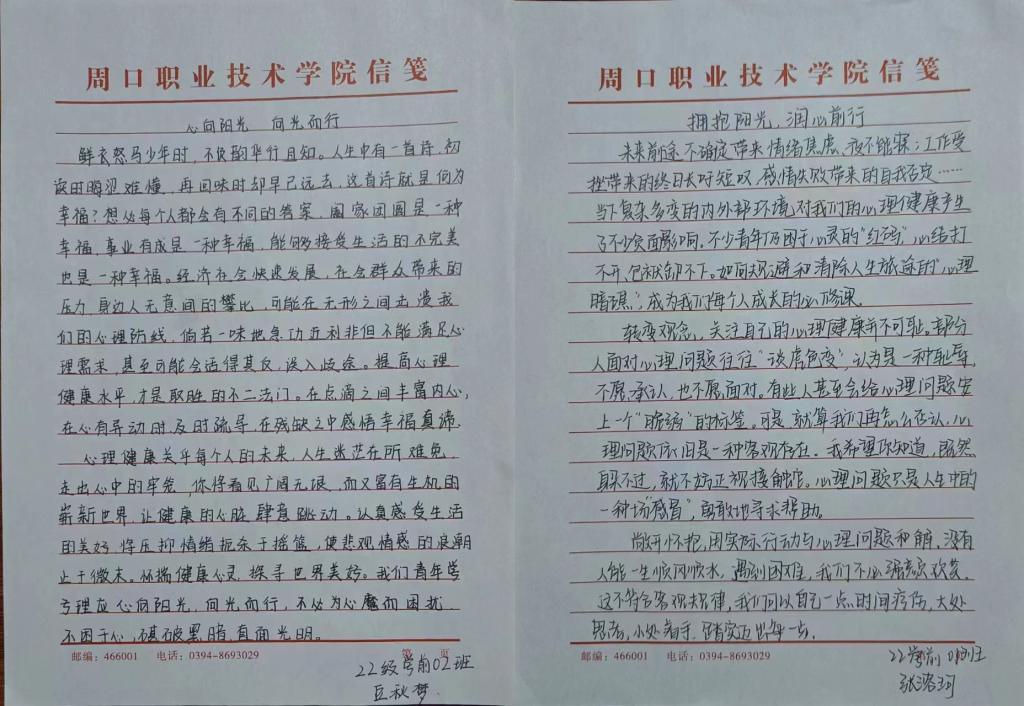 周口职业技术学院信笺
心向阳光 向光而行
鲜衣怒马少年时，不负韶华行且知。人生中有一首诗，初
读时晦涩难懂，再回味时却早已远去，这首诗就是何为
幸福？想必每个人都会有不同的答案，阖家团圆是一种
幸福，事业有成是一种幸福，能够接受生活的不完美
也是一种幸福。经济社会快速发展，社会群众带来的
压力，身边人无意间的攀比，可能在无形之间击溃我
们的心理防线，倘若一味地急功近利非但不能满足心
理需求，甚至可能会适得其反，误入歧途。提高心理
健康水平，才是取胜的不二法门。在点滴之间丰富内心，
在心有异动时及时疏导，在残缺之中感悟幸福真谛。
心理健康关乎每个人的未来，人生迷茫在所难免，
走出心中的牢笼，你将看见广阔无垠，而又富有生机的
崭新世界，让健康的心脏肆意跳动。认真感受生活
的美好，将压抑情绪扼杀于摇篮，使悲观情感的浪潮
止于微末。怀揣健康心灵，探寻世界美妙。我们青年学
习理应心向阳光，向光而行，不必为心魔而困扰，
不困于心，碾破黑暗，直面光明。
邮编：466001 电话：0394-8693029 第 页
22级学前02班
豆秋梦
周口职业技术学院信笺
拥抱阳光，润心前行
未来前途不确定带来情绪焦虑、夜不能寐；工作受
挫带来的终日长吁短叹，感情失败带来的自我否定……
当下复杂多变的内外部环境对我们的心理健康产生
了不少负面影响。不少青年仍困于心灵的“红码”，心结打
不开，包袱卸不下。如何规避和清除人生旅途的“心理
暗礁”，成为我们每个人成长的必修课。
转变观念，关注自己的心理健康并不可耻。部分
人面对心理问题往往“谈虎色变”，认为是一种耻辱，
不愿承认，也不愿面对。有些人甚至会给心理问题安
上一个“脆弱”的标签。可是，就算我们再怎么否认，心
理问题依旧是一种客观存在。我希望你知道，既然
躲不过，就不妨正视接触它。心理问题只是人生中的
一种场“感冒”，勇敢地寻求帮助。
敞开怀抱，用实际行动与心理问题和解。没有
人能一生顺风顺水，遇到困难，我们不必强颜欢笑，
这不符合客观规律，我们可以自己一点时间疗伤，大处
思落，小处着手，踏实迈出每一步。
邮编：466001 电话：0394-8693029
22学前 01班